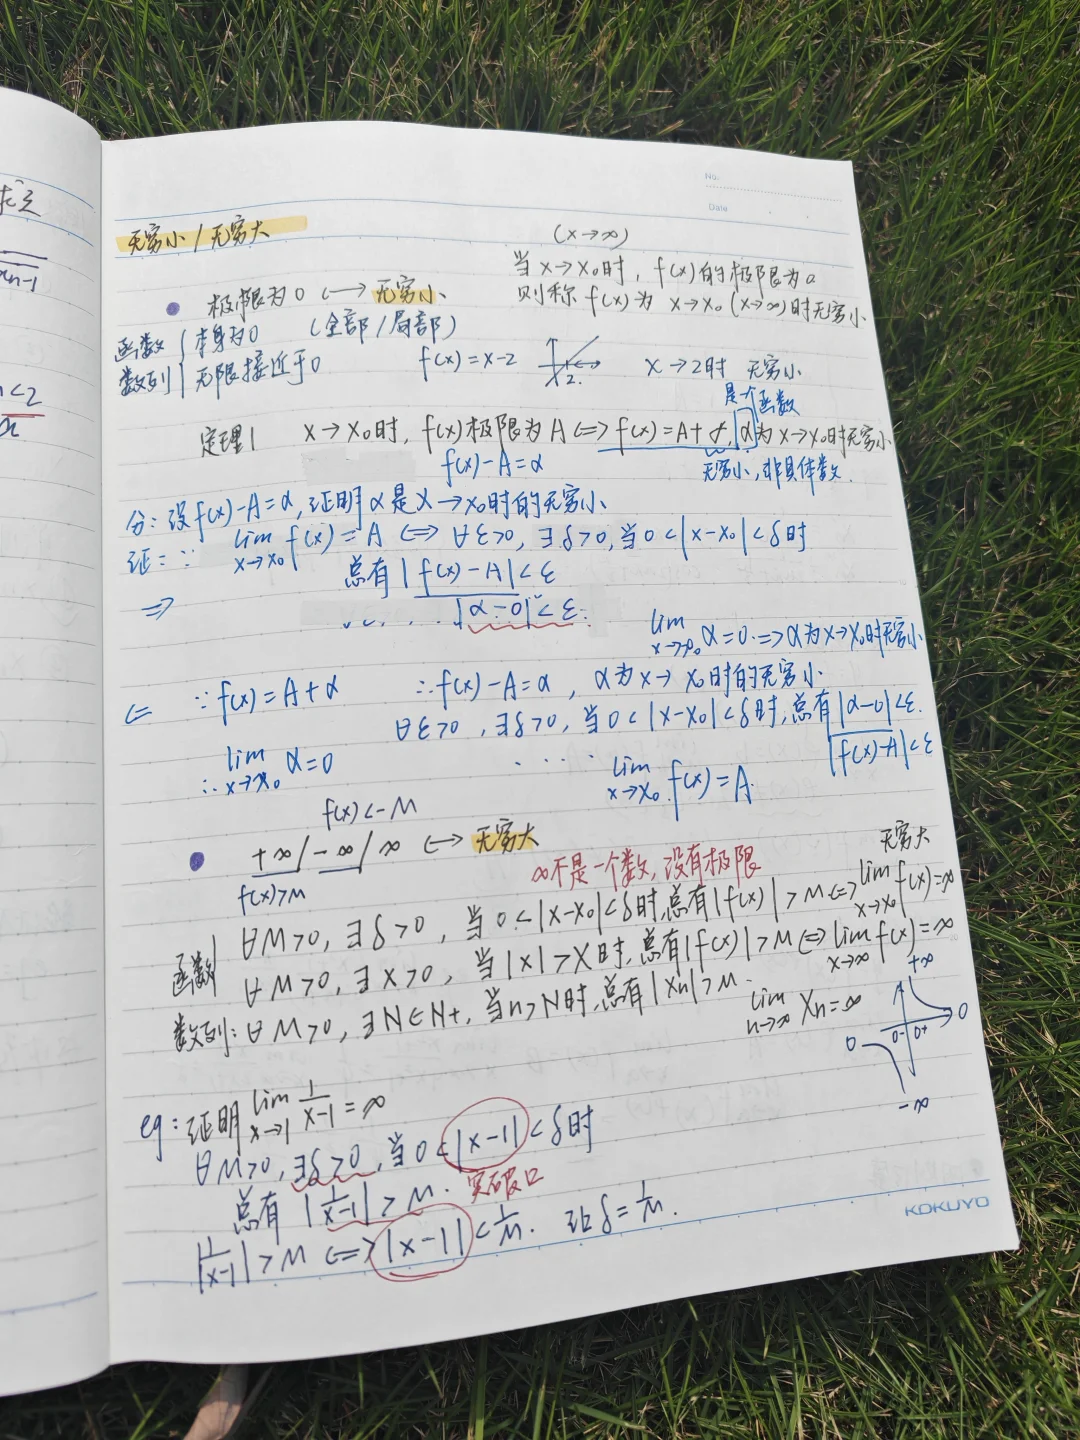 No.
Date
无穷小/无穷大
(x→∞)
当x→x₀时, f(x)的极限为0
则称f(x)为 x→x₀(x→∞)时无穷小
极限为0 ⟷ 无穷小
函数 本身为0 (全部/局部)
数列 无限接近于0
f(x)=x-2
2
x→2时 无穷小
是个函数
定理1 x→x₀时, f(x)极限为A ⟺ f(x)=A+α, α为x→x₀时无穷小
f(x)-A=α
无穷小,非具体数.
分: 设f(x)-A=α, 证明α是x→x₀时的无穷小
证: ∵ lim x→x₀ f(x)=A ⟺ ∀ε>0, ∃δ>0, 当0<|x-x₀|<δ时
总有|f(x)-A|<ε
⇒
|α-0|<ε.
lim x→x₀ α=0. ⇒ α为x→x₀时无穷小
⇐ ∵ f(x)=A+α ∴ f(x)-A=α, α为x→x₀时的无穷小
∀ε>0, ∃δ>0, 当0<|x-x₀|<δ时, 总有|α-0|<ε.
|f(x)-A|<ε
∴ lim x→x₀ α=0
.... lim x→x₀ f(x)=A.
f(x)<-M
+∞/-∞/∞ ⟷ 无穷大
f(x)>M
∞不是一个数,没有极限
无穷大
函数 ∀M>0, ∃δ>0, 当0<|x-x₀|<δ时,总有|f(x)|>M ⟺ lim x→x₀ f(x)=∞
∀M>0, ∃X>0, 当|x|>X时, 总有|f(x)|>M ⟺ lim x→∞ f(x)=∞
数列: ∀M>0, ∃N∈N+, 当n>N时,总有|Xn|>M.
lim n→∞ Xn=∞
+∞
0
0- 0+
0
-∞
eg: 证明 lim x→1 1/(x-1)=∞
∀M>0, ∃δ>0, 当0<|x-1|<δ时
总有|1/(x-1)|>M.
突破口
|1/(x-1)|>M ⟺ |x-1|<1/M. 取δ=1/M.
KOKUYO